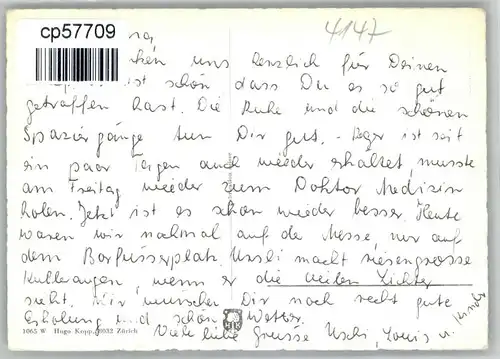 cp57709
4147
uns herzlich für Deinen
ist schön dass Du es so gut
getroffen hast. Die Ruhe und die schönen
Spaziergänge tun Dir gut. - Roger ist seit
ein paar Tagen auch wieder erkältet, musste
am Freitag wieder zum Doktor Medizin
holen. Jetzt ist es schon wieder besser. Heute
waren wir nochmal auf de Messe, nur auf
dem Barfüsserplatz. Urski macht riesengrosse
Kulleraugen, wenn er die vielen Lichter
sieht. Wir wünschen Dir noch recht gute
Erholung und schön Wetter.
Viele liebe Grüsse Uschi, Louis u. Kinder
1065 W Hugo Kopp, 8032 Zürich